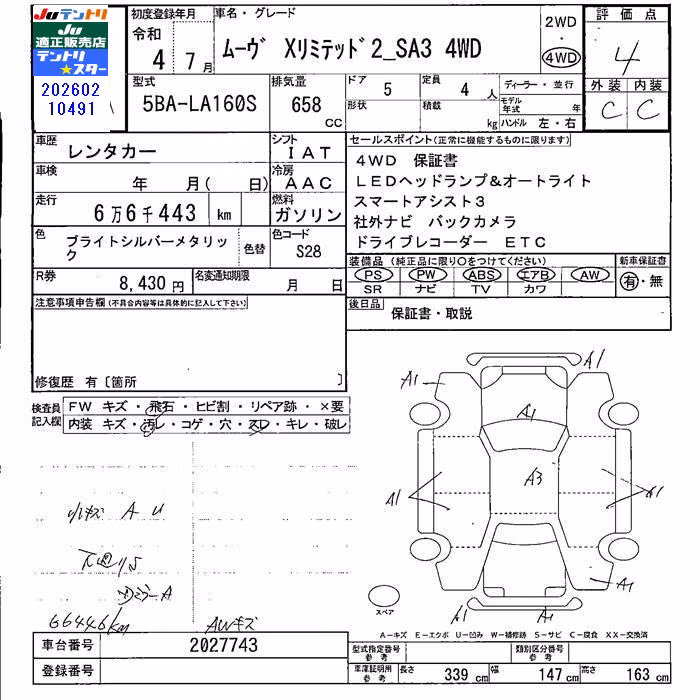 JUテントリ
JU
適正販売店
テントリ
★スター
202602
10491
初度登録年月
令和
4 7月
車名・グレード
ムーヴ Xリミテッド2_SA3 4WD
2WD
・
4WD
評価点
4
型式
5BA-LA160S
排気量
658
CC
ドア
5
定員
4人
形状
積載
kg
ディーラー・並行
モデル年式 年
ハンドル 左・右
外装 内装
C C
車歴
レンタカー
シフト
IAT
車検
年 月( 日)
冷房
AAC
走行
6万6千443 km
燃料
ガソリン
色
ブライトシルバーメタリック
色替
色コード
S28
R券
8,430円
名変通知期限
月 日
セールスポイント(正常に機能するものに限ります)
4WD 保証書
LEDヘッドランプ&オートライト
スマートアシスト3
社外ナビ バックカメラ
ドライブレコーダー ETC
装備品 (純正品に限り○をつけてください)
PS PW ABS エアB AW
SR ナビ TV カワ
新車保証書
有・無
後日品
保証書・取説
注意事項申告欄(不具合内容等は具体的に記入して下さい)
修復歴 有〔箇所 〕
検査員記入欄
FW キズ・飛石・ヒビ割・リペア跡・×要
内装 キズ・汚レ・コゲ・穴・スレ・キレ・破レ
小キズ A U
下廻りS
ミラーA
66446km
AWキズ
A1
A1
A1
A3
A1
A1
A1
A1
スペア
A−キズ E−エクボ U−凹み W−補修跡 S−サビ C−腐食 XX−交換済
車台番号
2027743
登録番号
型式指定番号
参考
類別区分番号
参考
車庫証明用
参考
長さ 339cm 幅 147cm 高さ 163cm